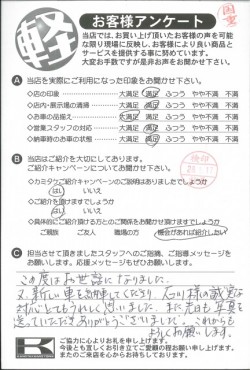 軽
お客様アンケート
当店では、お買い上げ頂いたお客様の声を可能
な限り現場に反映し、お客様により良い商品と
サービスを提供する事に努めています。
大変お手数ですが是非お声をお聞かせ下さい。
A 当店を実際にご利用になった印象をお聞かせ下さい。
◇店の印象 大満足 満足 ふつう やや不満 不満
◇店内・展示場の清掃 大満足 満足 ふつう やや不満 不満
◇お車の品揃え 大満足 満足 ふつう やや不満 不満
◇営業スタッフの対応 大満足 満足 ふつう やや不満 不満
◇納車時のお車の状態 大満足 満足 ふつう やや不満 不満
B 当店はご紹介を大切にしております。
ご紹介キャンペーンについてお聞かせ下さい。
◇カミタケご紹介キャンペーンのご説明はありましたでしょうか
はい いいえ
◇ご紹介を頂けますでしょうか
はい いいえ
◇具体的にご紹介頂ける方とのご関係をお聞かせ頂けますでしょうか
ご親族 ご友人 職場の方 機会があれば紹介したい
C 担当させて頂きましたスタッフへのご指摘、ご指導メッセージを
お願いします。応援メッセージもぜひお願いします。
この度はお世話になりました。
又、新しい車を納車してくださり 石川様の誠実な
対応とてもうれしく思いました。また先日も写真を
送っていただきありがとうございました。これからも
よろしくお願いします。
K
ご協力に心よりお礼を申し上げます。
今後とも宜しくお引き立てご愛顧の程お願い申し上げます。
またのご来店を心からお待ちしております。